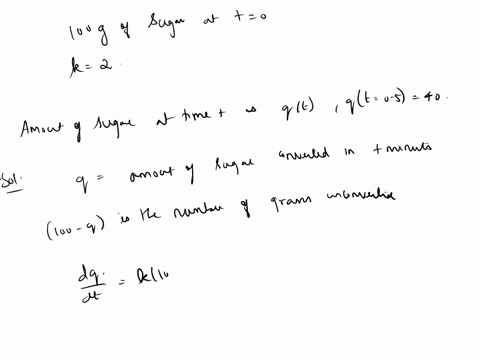 100 g of sugar at t=0
k = 2.
Amount of sugar at time t is q(t), q(t=0.5) = 40.
Sol: q = amount of sugar converted in t minutes
(100-q) is the number of grams unconverted
dq/dt = k(10